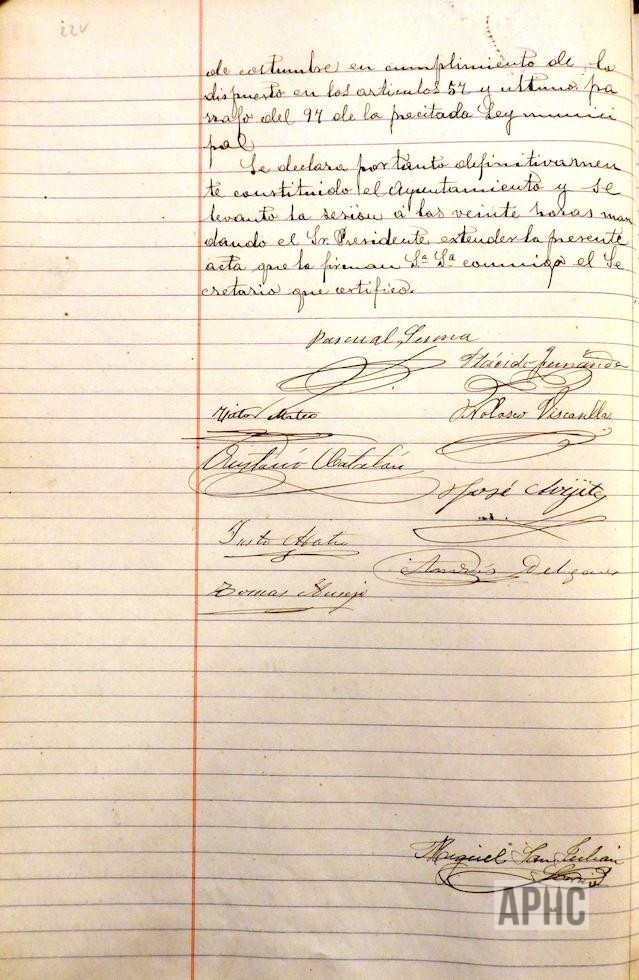 22v
de costumbre en cumplimiento de lo
dispuesto en los articulos 57 y ultimo pa
rrafo del 97 de la precitada Ley munici
pal
Se declara por tanto definitivamen
te constituido el Ayuntamiento y se
levanto la sesion a las veinte horas man
dando el Sr. Presidente extender la presente
acta que la firman Sª Sª conmigo el Se
cretario que certifico.
Pascual
Plácido Fernandez
Mateo
Nolasco Viscasillas
Catalán
José
Justo Mateo
Andrés
Tomas
Miguel San Julian
APHC